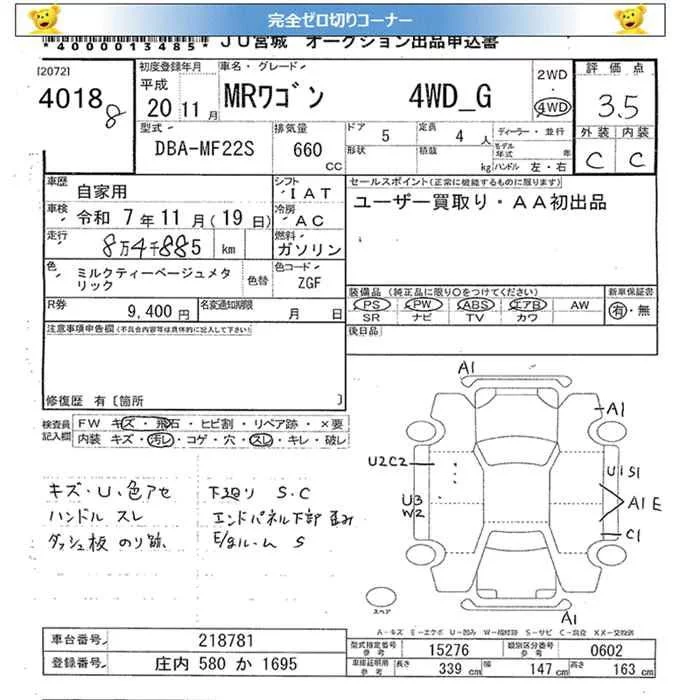 完全ゼロ切りコーナー
*4000013485* JU宮城 オークション出品申込書
[2072]
4018 8
初度登録年月
平成
20年11月
車名・グレード
MRワゴン 4WD_G
2WD
・
4WD
評価点
3.5
外装 内装
C C
型式
DBA-MF22S
排気量
660
CC
ドア 5
定員 4 人
ディーラー・並行
形状
積載 kg
モデル年式 年
ハンドル 左・右
車歴
自家用
シフト
IAT
セールスポイント(正常に機能するものに限ります)
ユーザー買取り・AA初出品
車検
令和 7年11月(19日)
冷房
AC
走行
8万4千885 km
燃料
ガソリン
色
ミルクティーベージュメタリック
色替
色コード
ZGF
装備品(純正品に限り○をつけてください)
PS PW ABS エアB AW
SR ナビ TV カワ
新車保証書
有・無
R券
9,400円
名変通知期限
月 日
後日品
注意事項申告欄(不具合内容等は具体的に記入して下さい)
修復歴 有[箇所 ]
検査員記入欄
FW キズ・飛石・ヒビ割・リペア跡・×要
内装 キズ・汚レ・コゲ・穴・スレ・キレ・破レ
キズ・U・色アセ
ハンドル スレ
ダッシュ板 のり跡
下廻り S.C
エンドパネル下部 歪み
E/gルーム S
A1
A1
U2C2
U1S1
U3
W2
A1E
C1
A1
スペア
A-キズ E-エクボ U-凹み W-補修跡 S-サビ C-腐食 XX-交換済
車台番号
218781
登録番号
庄内 580 か 1695
型式指定番号
参考
15276
類別区分番号
参考
0602
車検証明用
参考
長さ 339 cm
幅 147 cm
高さ 163 cm